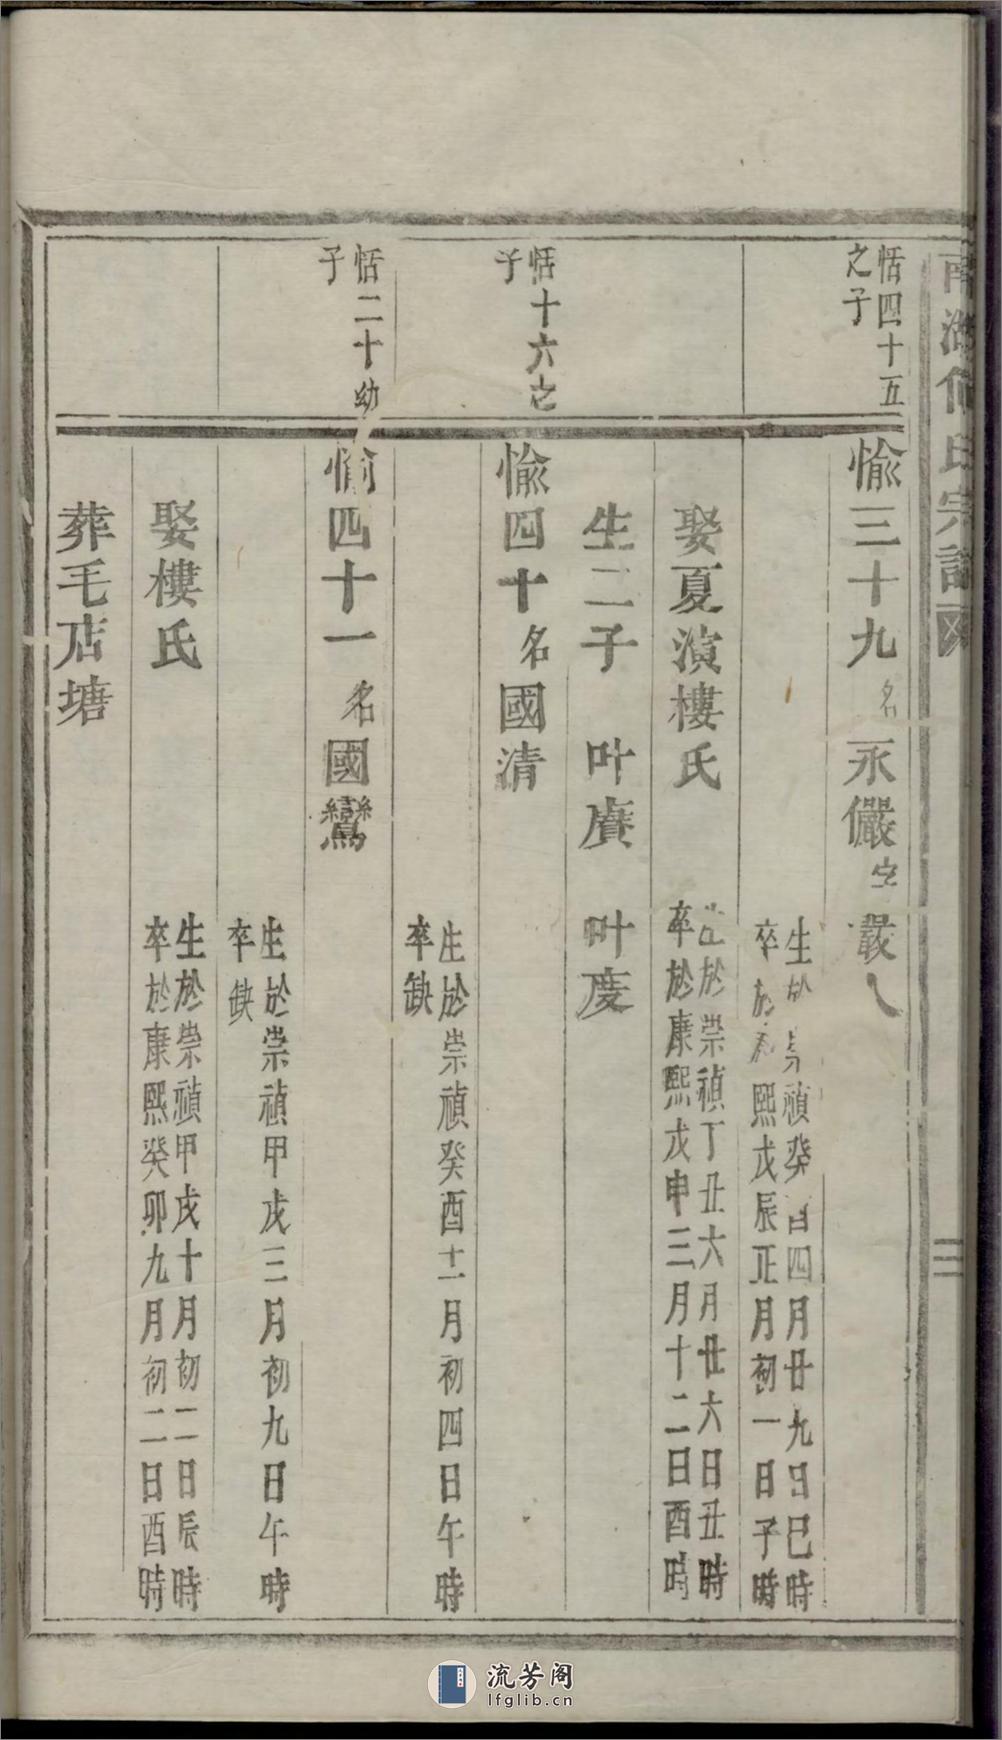 恬四十五
之子
愉三十九名永儼字嚴八
生於崇禎癸酉四月廿九日巳時
卒於康熙戊辰正月初一日子時
娶夏演樓氏
生於崇禎丁丑六月廿六日丑時
卒於康熙戊申三月十二日酉時
生二子 叶賡 叶度
恬十六之
子
愉四十名國清
生於崇禎癸酉十一月初四日午時
卒缺
恬二十幼
子
愉四十一名國鸞
生於崇禎甲戌三月初九日午時
卒缺
娶樓氏
生於崇禎甲戌十月初二日辰時
卒於康熙癸卯九月初二日酉時
葬毛店塘
流芳阁
lfglib.cn